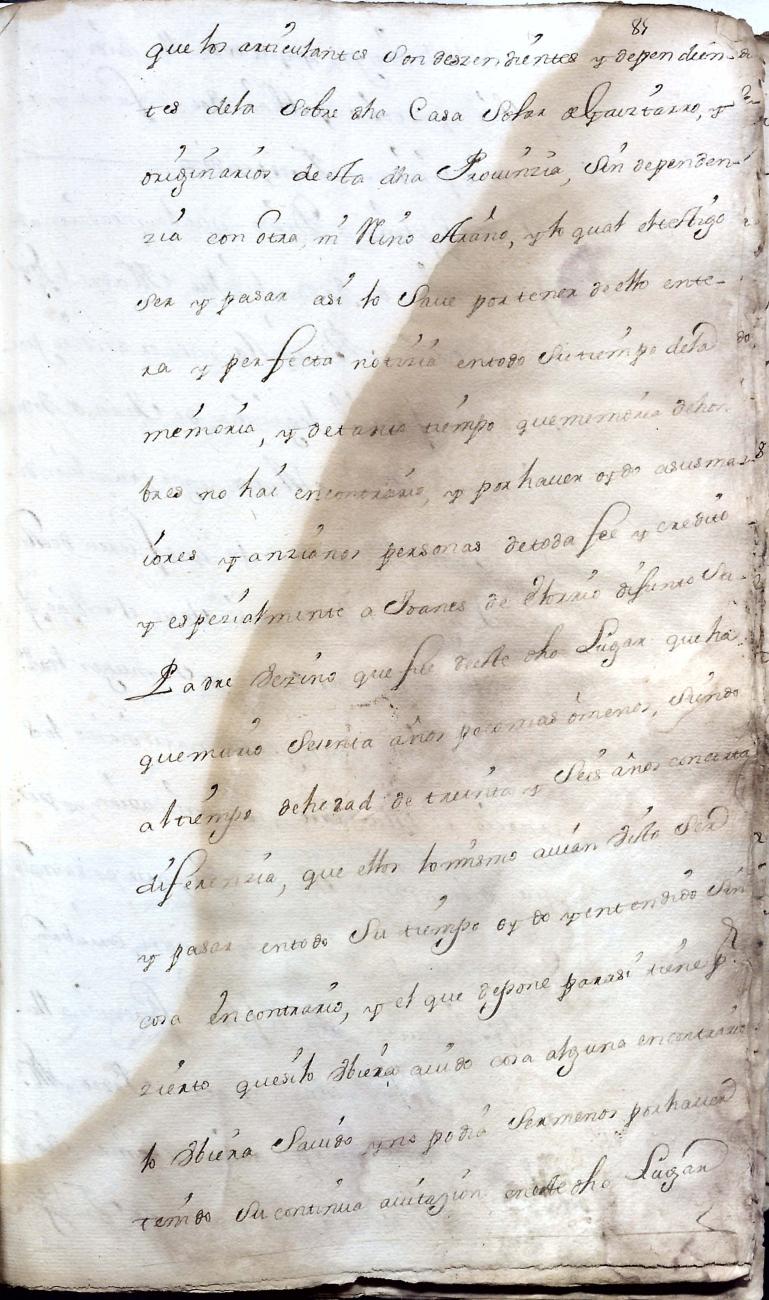 85
que los articulantes son deszendientes y dependien-
tes dela Sobre dha Casa Solar de
originarios de esta dha Prouinzia, Sin dependen-
zia con otra, ni Reino estraño, y lo qual el testigo
ser y pasar asi lo Saue por tener de ello ente-
ra y perfecta notizia entodo Su tiempo dela
memoria, y de tanto tiempo que memoria de hon
bres no hai encontrario, y por hauer oydo a sus ma-
iores y anzianos personas de toda fee y credito
y espezialmente a Joanes de difunto Su
Padre Vezino que fue deste dho Lugar que ha
que murio Sesenta años poco mas o menos, siendo
al tiempo de hedad de treinta y Seis años con corta
diferenzia, que ellos lo mismo auian visto Ser
y pasar entodo Su tiempo oydo y entendido Sin
cosa en contrario, y el que depone para si tiene p.r
zierto que si lo vbiera auido cosa alguna encontrario
lo vbiera Sauido y no podia Ser menos por hauer
tenido Su continua auitazion eneste dho Lugar